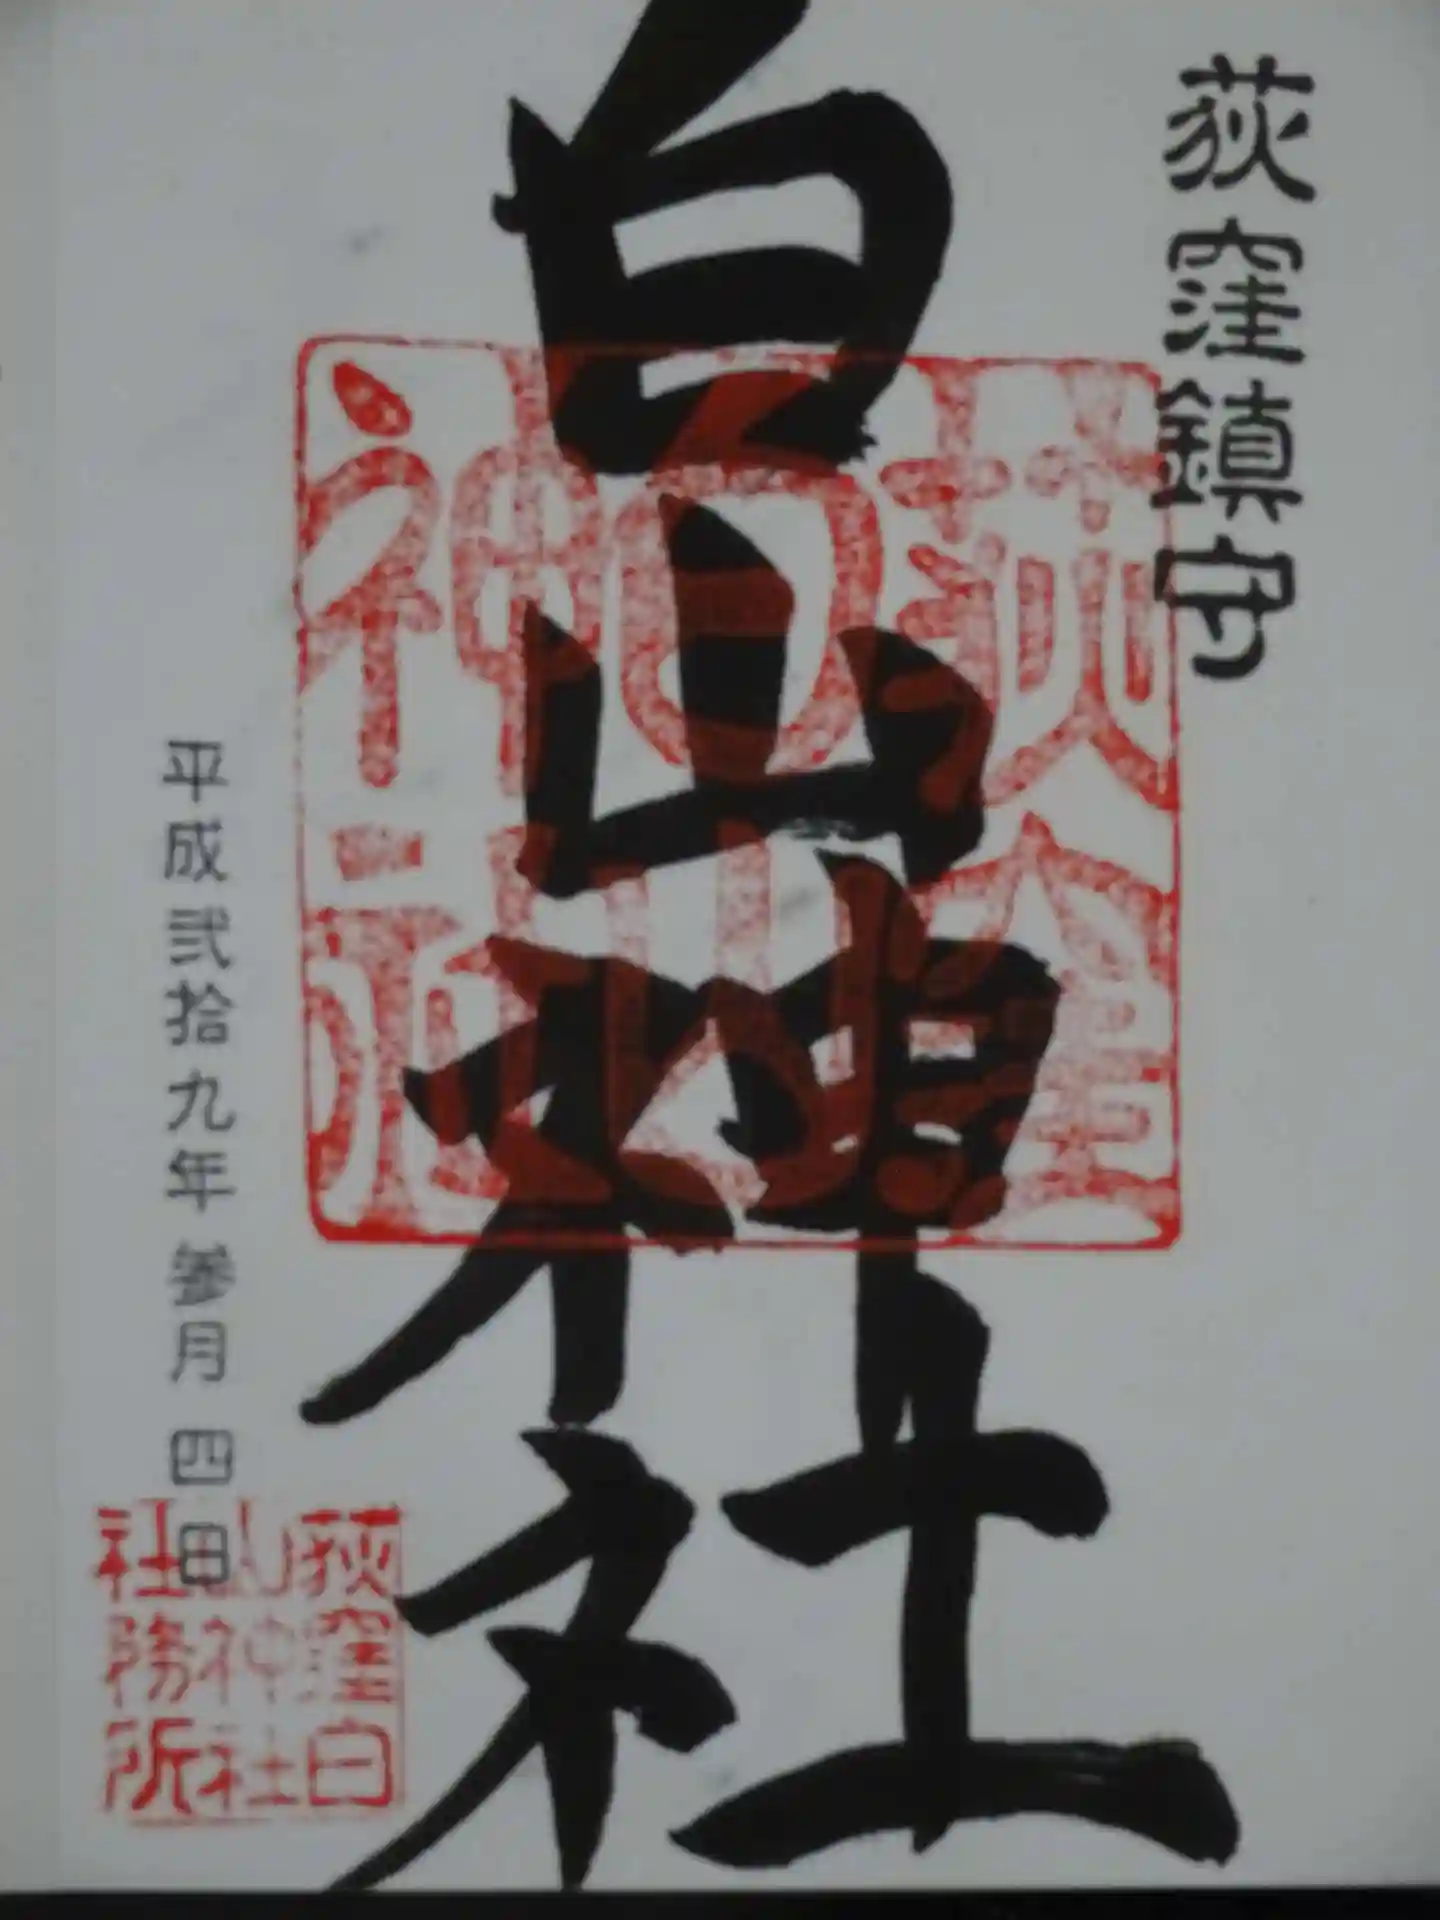 荻窪鎮守
白山神社
荻窪
白山
神社
平成弐拾九年参月四日
荻窪白
山神社
社務所